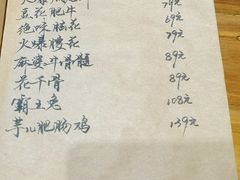 豆花肥牛 79元
绝味脑花 69元
火爆腰花 79元
麻婆牛骨髓 89元
花千骨 89元
霸王兔 108元
芋儿肥肠鸡 139元